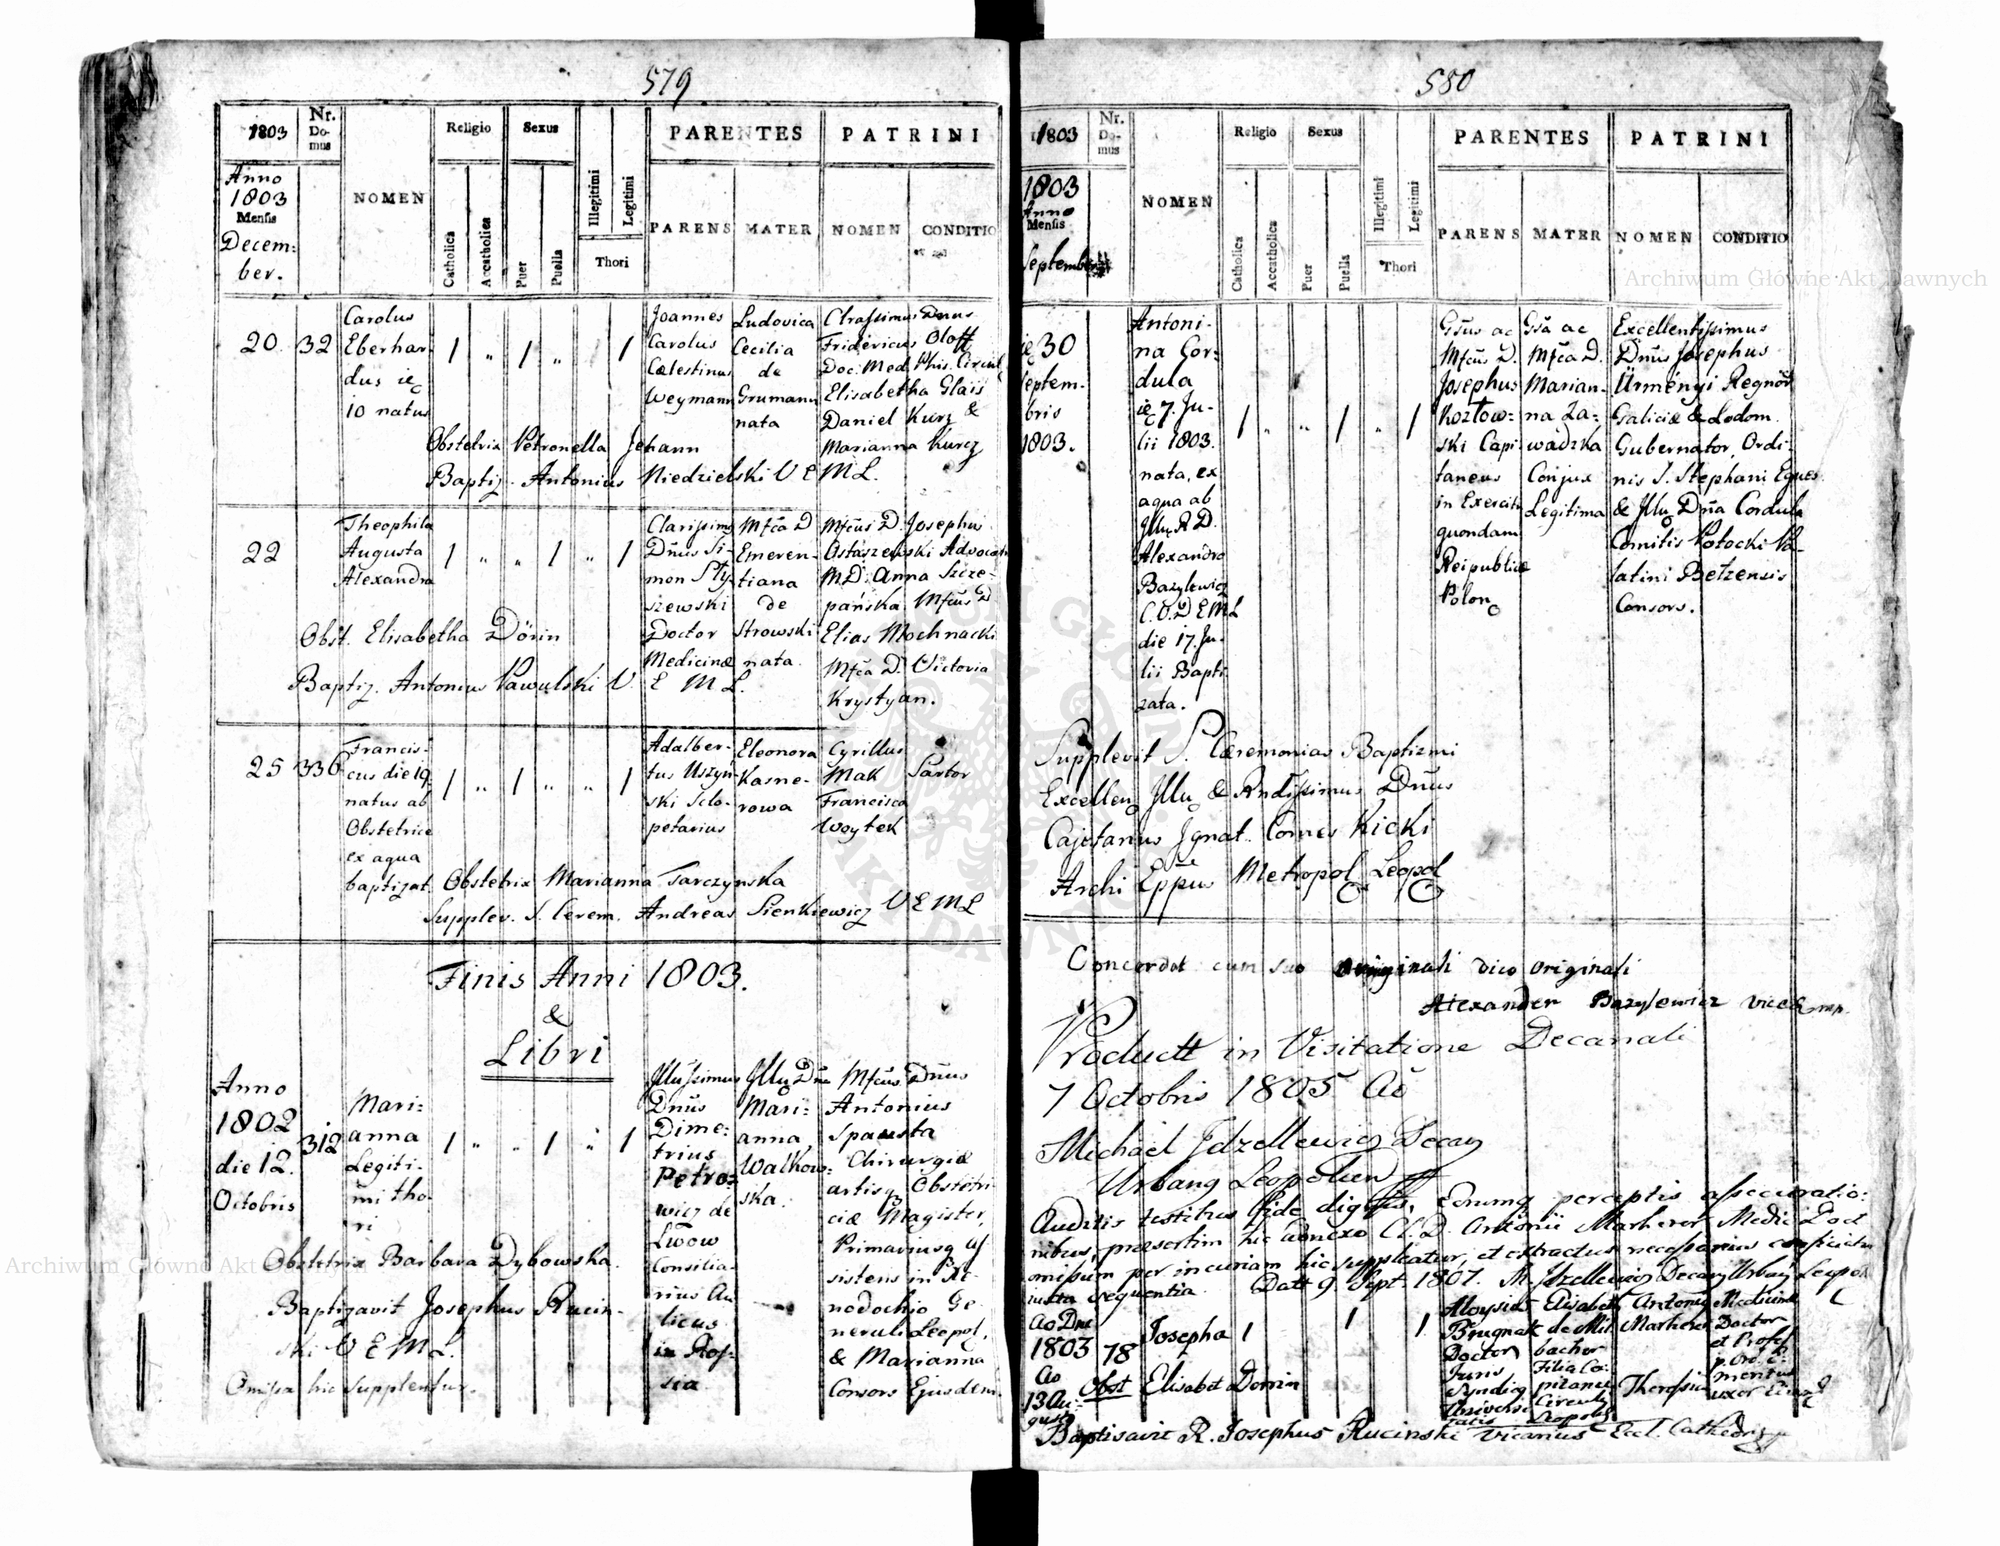 579
1803
Nr. Domus
NOMEN
Religio
Sexus
PARENTES
PATRINI
Anno
1803
Mensis
Decem:
ber.
Catholica
Accatholica
Puer
Puella
Illegitimi
Legitimi
Thori
PARENS
MATER
NOMEN
CONDITIO
20
32
Carolus
Eberhar:
dus
10 natus
1 „ 1 „ 1
Joannes
Carolus
Cœlestinus
Weymann
Ludovica
Cecilia
de
Grumann
nata
Clrassimus Dnus
Fridericus Oloff
Doc: Med.
Elisabetha Glais
Daniel Kurz &
Marianna Kurcz
Obstetrix Petronella Jehann
Baptiz. Antonius Niedzielski V E M L.
22
Theophila
Augusta
Alexandra
1 „ „ 1 „ 1
Clarissimg
Dnus Si-
mon Sty-
szewski
Doctor
Medicinæ
Mfca D
Emeren-
tiana
de
Strowski
nata.
Mfcus D. Josephus
Ostaszewski Advocat
M.D. Anna Szcze-
pańska Mfcus D
Elias Mochnacki
Mfca D. Victoria
Krystyan.
Obst. Elisabetha Dörin
Baptiz. Antonius Pawulski V. E M L.
25
336
Francis-
cus die 19
natus ab
Obstetrice
ex aqua
baptizat.
1 „ 1 „ „ 1
Adalber-
tus Uszyń-
ski Sclo-
petarius
Eleonora
Kasne-
rowa
Cyrillus
Mak Sartor
Francisca
Woytek
Obstetrix Marianna Tarczynska
Supplev. S. Cerem. Andreas Sienkiewicz V E M L
Finis Anni 1803.
&
Libri
Anno
1802
die 12.
Octobris
312
Mari:
anna
Legiti-
mi tho-
ri
1 „ „ 1 „ 1
Illussimus
Dnus
Dime:
trius
Petro:
wicz de
Lwow
Consilia-
rius Au
licus
in Ros-
sia
Illu Dna
Mari:
anna
Walkow:
ska.
Mfcus Dnus
Antonius
Spausta
Chirurgiæ
artisq Obstetri
ciæ Magister,
Primariusq As
sistens in Xe
nodochio Ge
nerali Leopol,
& Marianna
Consors Ejusdem
Obstetrix Barbara Dybowska.
Baptizavit Josephus Rucin-
ski V E M L.
Omissa hic supplentur.
580
1803
Nr. Domus
NOMEN
Religio
Sexus
PARENTES
PATRINI
1803
Anno
Mensis
September
Catholica
Accatholica
Puer
Puella
Illegitimi
Legitimi
Thori
PARENS
MATER
NOMEN
CONDITIO
30
Septem-
bris
1803.
Antoni-
na Cor:
dula
7. Ju-
lii 1803.
nata, ex
aqua ab
Illu R D.
Alexandro
Bazylewicz
C. O. D E M L
die 17. Ju-
lii Bapti
zata.
1 „ „ 1 „ 1
Gsus ac
Mfcus D.
Josephus
Kozłow-
ski Capi
taneus
in Exercitu
quondam
Reipublicæ
Polon
Gsa ac
Mfca D.
Marian-
na Za:
wadzka
Conjux
Legitima
Excellentissimus
Dnus Josephus
Ürményi Regnor
Galiciæ & Lodom.
Gubernator, Ordi-
nis S. Stephani Eques
& Illu Dna Cordula
Comitis Potocki Pa-
latini Betzensis
Consors.
Supplevit S. Cæremonias Baptizmi
Excellen Illu & Rndissimus Dnus
Cajetanus Ignat. Comes Kicki
Archi Eppus Metropol Leopol
Concordat cum suo originali dico originali
Alexander Bazylewicz mp.
Product in Visitatione Decanali
7 Octobris 1805 Ao
Michael Idzellewicz Decan
Urbang Leopolien
Auditis testibus fide dignis, Eorumq perceptis assecuratio:
nibus, præsertim hic adnexo Cl. D. Antonii Marherer Medic Doct
omissum per incuriam hic suppleatur, et extractus necessarius conficiatur
iuxta sequentia. Datt 9. Sept. 1807. M. Idzellewicz Decan Urban Leopol
Ao Dni
1803
Ao
13 Au-
gusti
78
Josepha
1
1
1
Aloysius
Brugnak
Doctor
Juris
Syndiq
Universi
tatis
Elisabeth
de Mit
bacher
Filia Ca:
pitanei
Circuli
Leopol
Antonig
Marherer
Theresia
Medicinæ
Doctor
et Profes
p. Ord. E-
meritus
uxor
Obst Elisabet Dorrin
Baptisavit R. Josephus Rucinski Vicarius Eccl. Cathedr
Archiwum Główne Akt Dawnych
Archiwum Główne Akt Dawnych